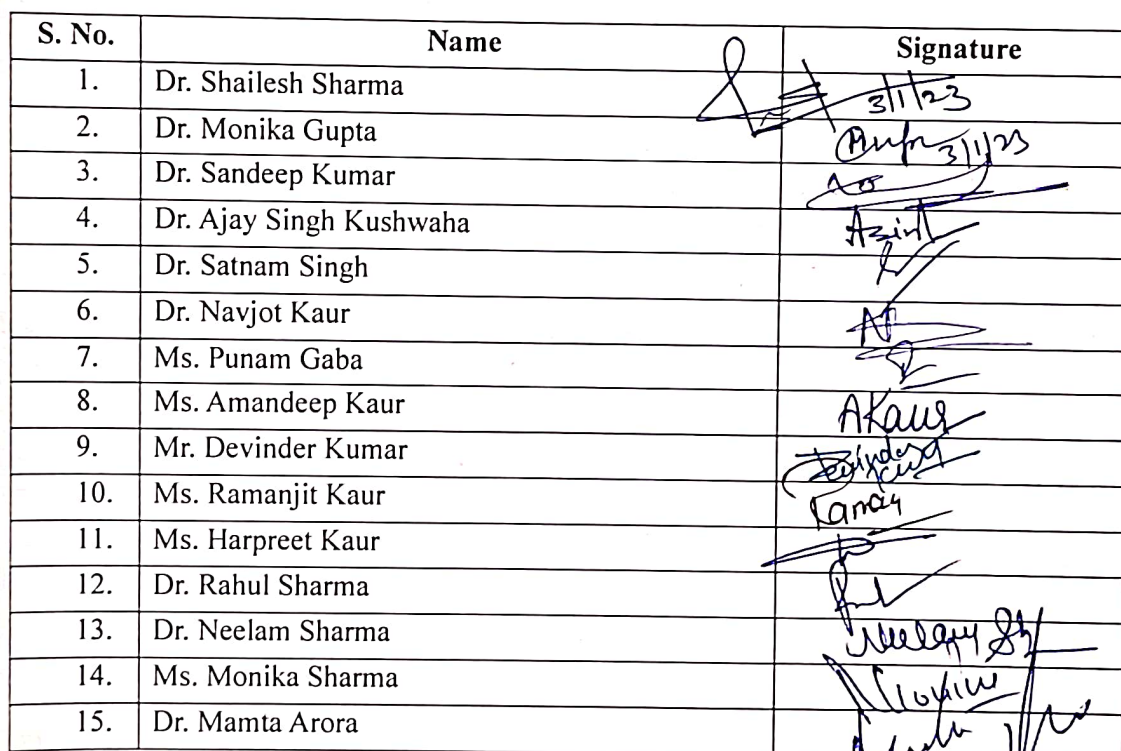 S. No. Name Signature
1. Dr. Shailesh Sharma 3/1/23
2. Dr. Monika Gupta 3/1/23
3. Dr. Sandeep Kumar
4. Dr. Ajay Singh Kushwaha
5. Dr. Satnam Singh
6. Dr. Navjot Kaur
7. Ms. Punam Gaba
8. Ms. Amandeep Kaur AKaur
9. Mr. Devinder Kumar Devinder
10. Ms. Ramanjit Kaur
11. Ms. Harpreet Kaur
12. Dr. Rahul Sharma
13. Dr. Neelam Sharma Neelam Sh
14. Ms. Monika Sharma
15. Dr. Mamta Arora